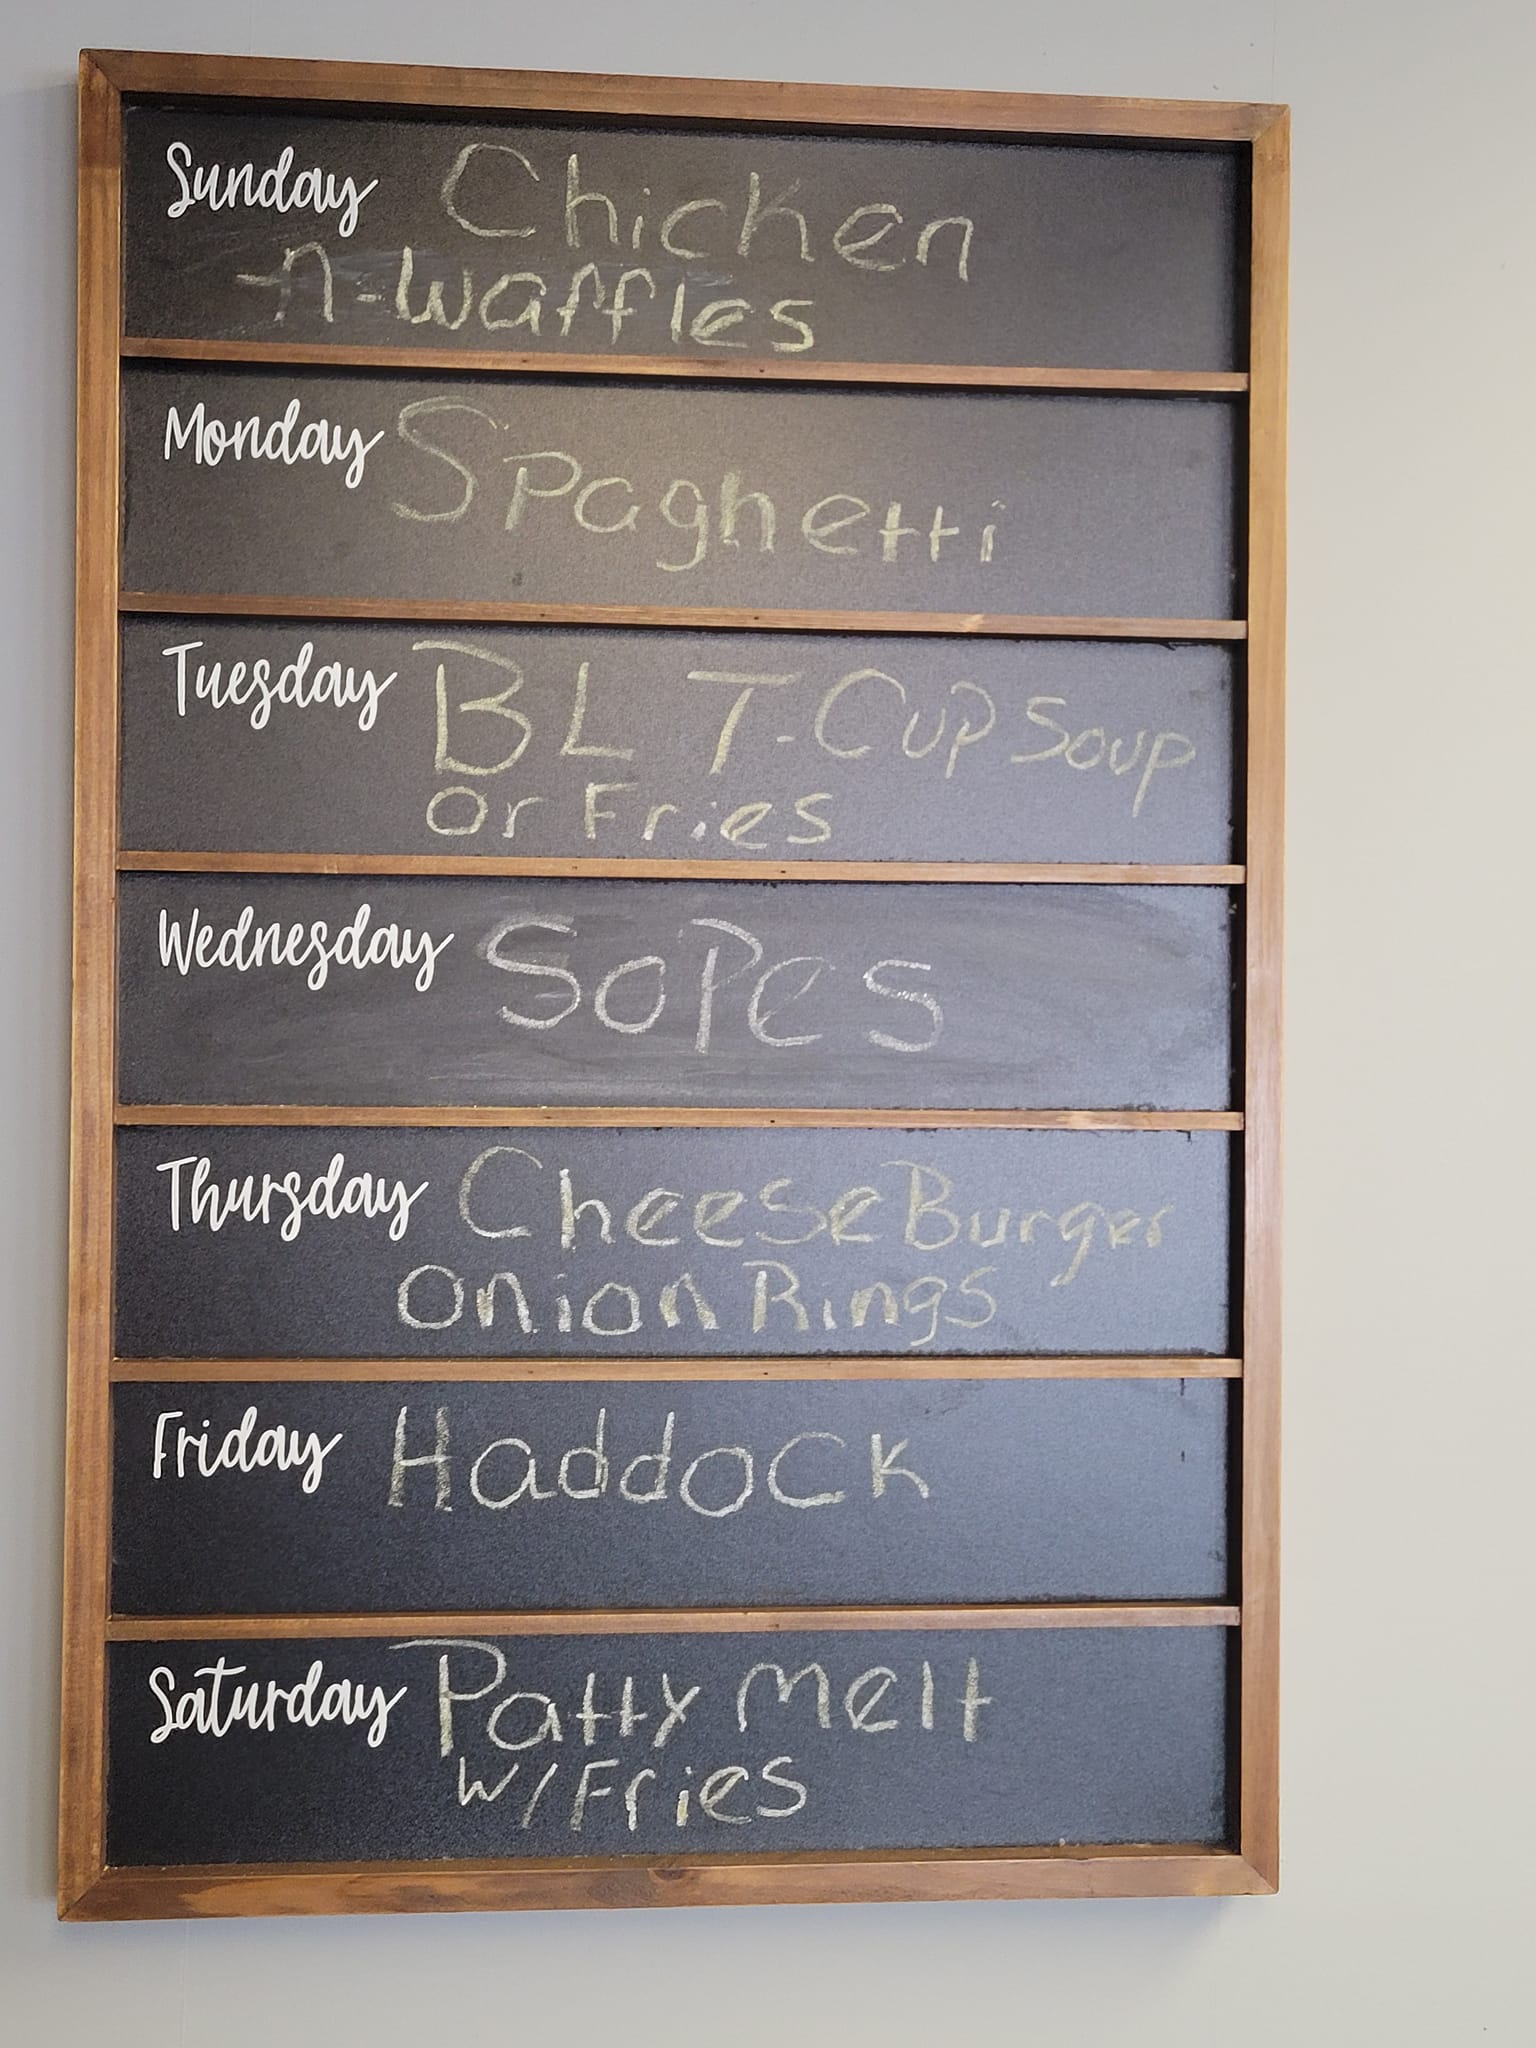 Sunday Chicken
-n-waffles
Monday Spaghetti
Tuesday BLT-Cup Soup
or Fries
Wednesday SoPes
Thursday CheeseBurger
Onion Rings
Friday Haddock
Saturday Patty melt
w/Fries